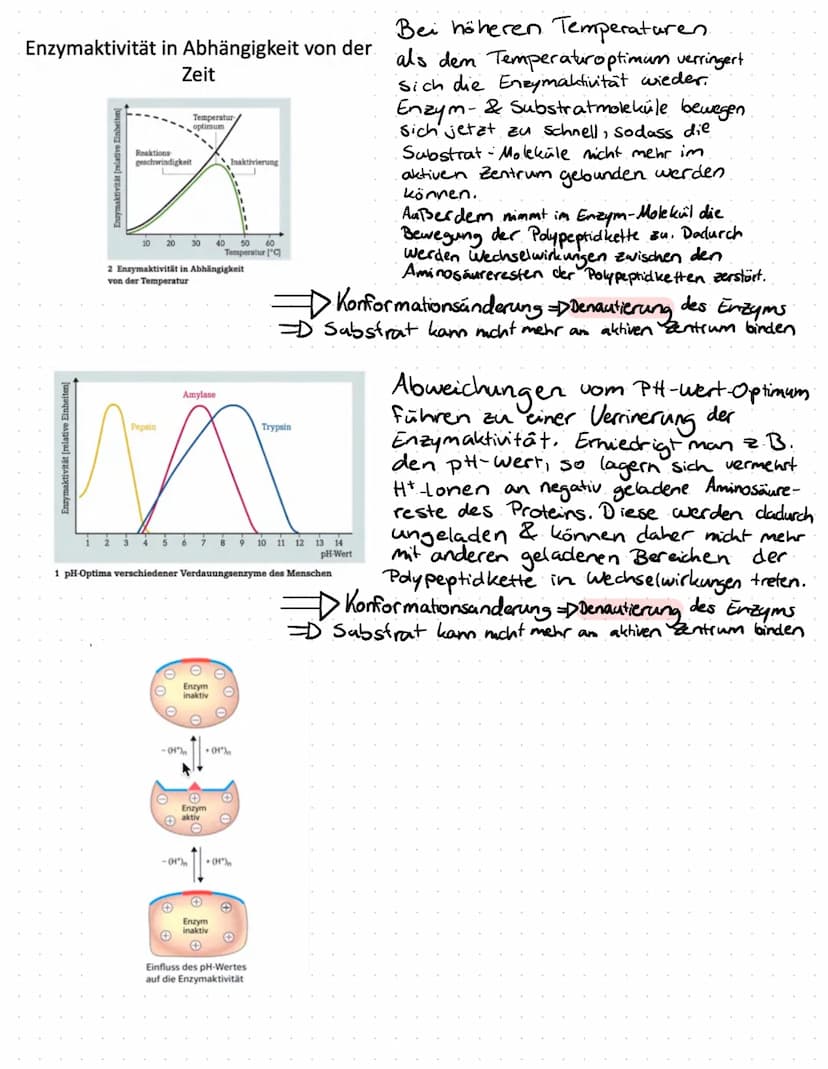 Enzymaktivität in Abhängigkeit von der
Zeit
Enzymaktivität [relative Einheiten]
Temperatur-
optimum
Reaktions-
geschwindigkeit
Inaktivierung
10 20 30 40 50 60
Temperatur [°C]
2 Enzymaktivität in Abhängigkeit
von der Temperatur
Bei höheren Temperaturen
als dem Temperaturoptimum verringert
sich die Enzymaktivität wieder.
Enzym- & Substratmoleküle bewegen
sich jetzt zu schnell, sodass die
Substrat-Moleküle nicht mehr im
aktiven Zentrum gebunden werden
können.
Außerdem nimmt im Enzym-Molekül die
Bewegung der Polypeptidkette zu. Dadurch
werden Wechselwirkungen zwischen den
Aminosäureresten der Polypeptidketten zerstört.
=> Konformationsänderung => Denautierung des Enzyms
=> Substrat kann nicht mehr am aktiven Zentrum binden
Enzymaktivität [relative Einheiten]
Amylase
Pepsin
Trypsin
1 2 3 4 5 6 7 8 9 10 11 12 13 14
pH-Wert
1 pH-Optima verschiedener Verdauungsenzyme des Menschen
Abweichungen vom PH-Wert-Optimum
führen zu einer Verrinerung der
Enzymaktivität. Erniedrigt man z.B.
den pH-Wert, so lagern sich vermehrt
H⁺-Ionen an negativ geladene Aminosäure-
reste des Proteins. Diese werden dadurch
ungeladen & können daher nicht mehr
mit anderen geladenen Bereichen der
Polypeptidkette in Wechselwirkungen treten.
=> Konformationsänderung => Denautierung des Enzyms
=> Substrat kann nicht mehr am aktiven Zentrum binden
Enzym
inaktiv
- (H⁺)n + (H⁺)n
Enzym
aktiv
- (H⁺)n + (H⁺)n
Enzym
inaktiv
Einfluss des pH-Wertes
auf die Enzymaktivität